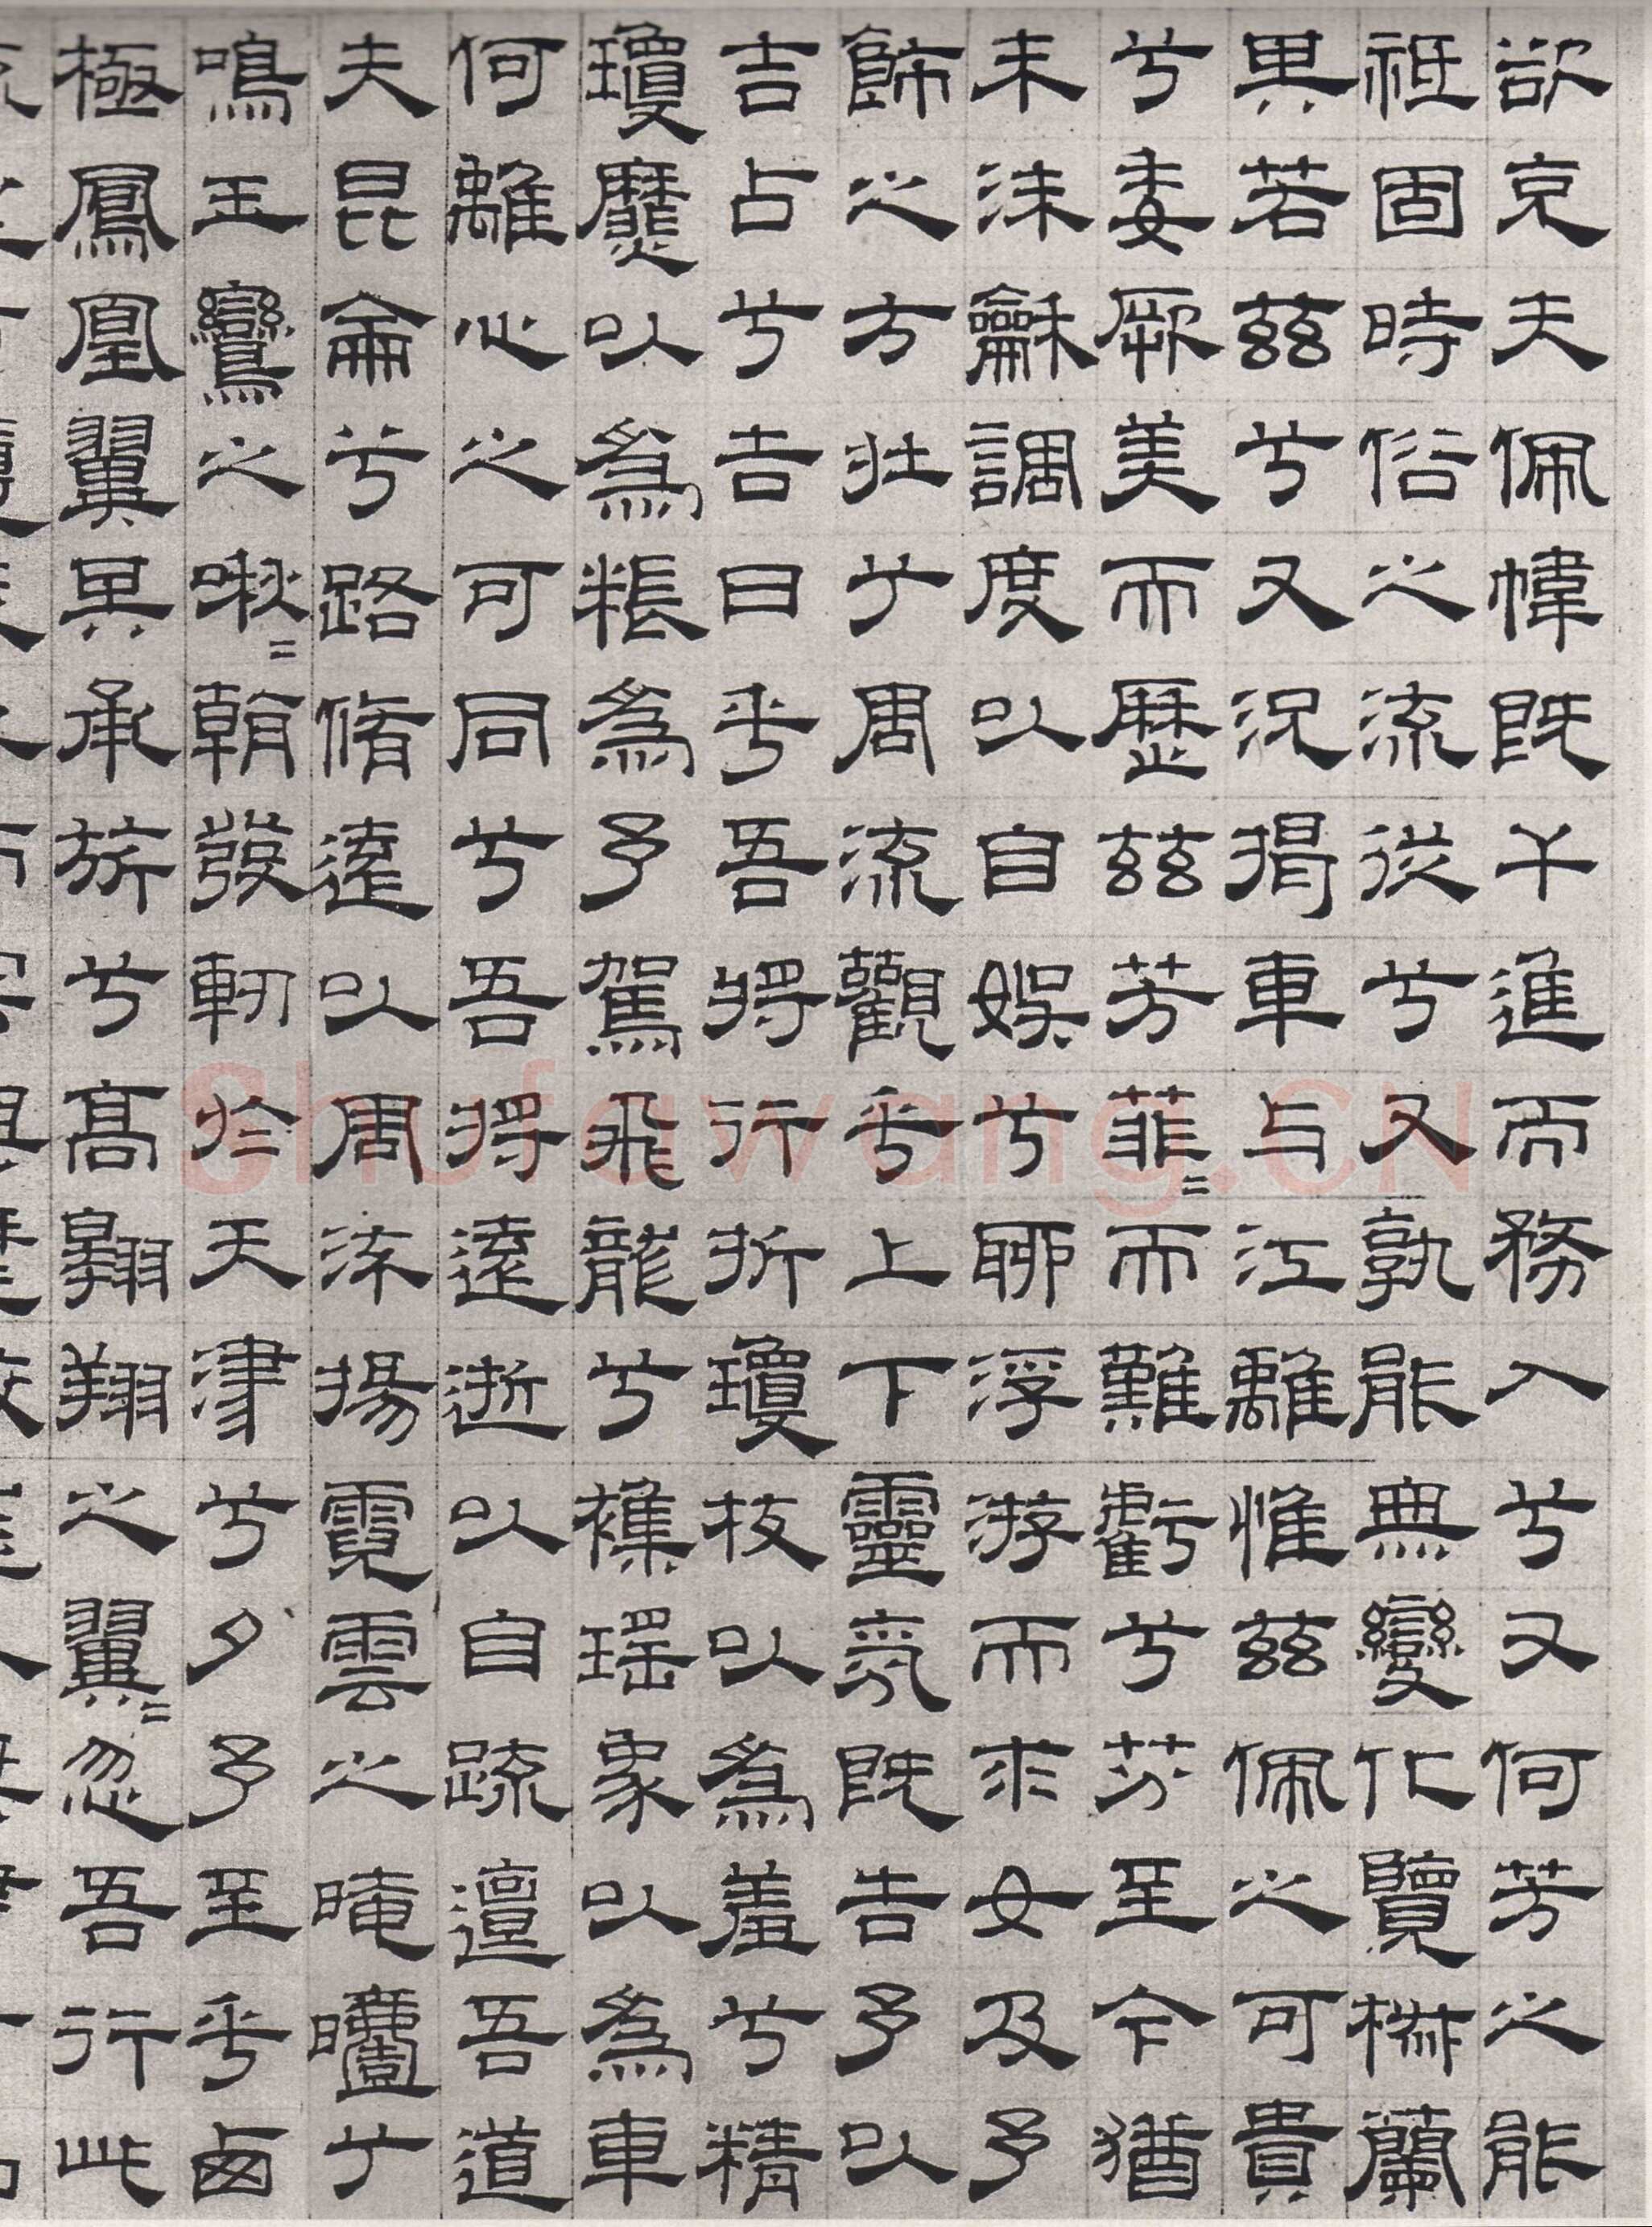 欲充夫佩幃既干進而務入兮又何芳之能
祗固時俗之流從兮又孰能無變化覽椒蘭
其若茲兮又況揭車与江離惟茲佩之可貴
兮委厥美而歷茲芳菲=而難虧兮芬至今猶
未沬龢調度以自娛兮聊浮游而求女及予
飾之方壯兮周流觀乎上下靈氛既告予以
吉占兮吉日乎吾將行折瓊枝以爲羞兮精
瓊爢以爲粻爲予駕飛龍兮襍瑤象以爲車
何離心之可同兮吾將遠逝以自疏邅吾道
夫昆侖兮路脩遠以周流揚霓雲之晻兮
鳴玉鸞之啾=朝發軔於天津兮夕予至乎西
極鳳凰翼其承旂兮高翱翔之翼=忽吾行此
Shufawang.CN